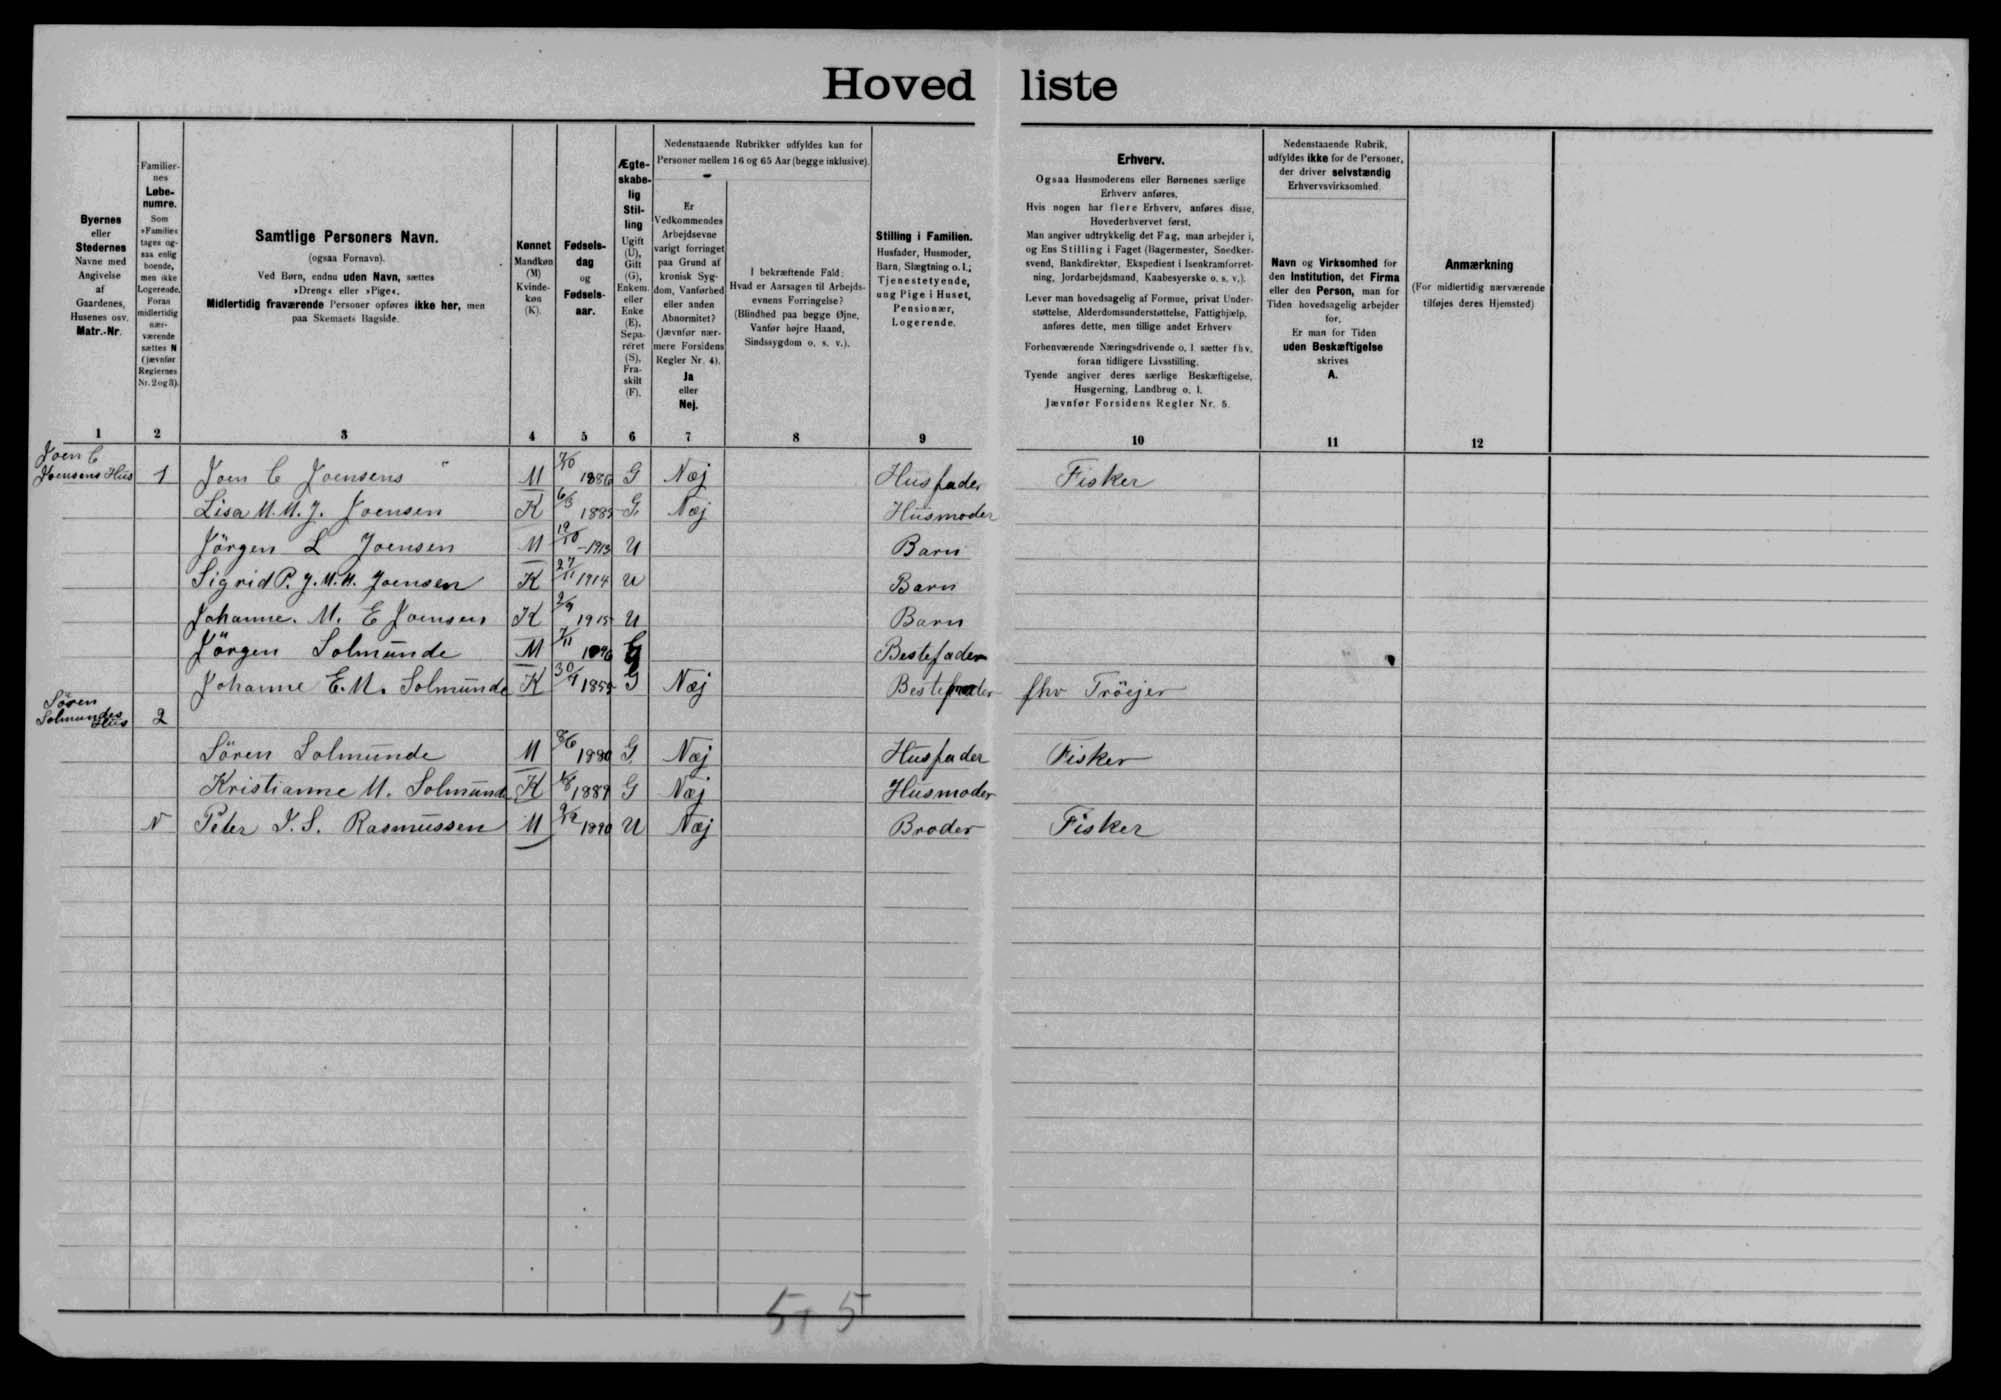 Hovedliste
Byernes
eller
Stedernes
Navne med
Angivelse
af
Gaardenes,
Husenes osv.
Matr.-Nr.
Familier-
nes
Løbe-
numre.
Som
»Familie«
tages og-
saa enlig
boende,
men ikke
Logerende.
Foran
midlertidig
nær-
værende
sættes N
(jævnfør
Reglernes
Nr. 2 og 3).
Samtlige Personers Navn.
(ogsaa Fornavn).
Ved Børn, endnu uden Navn, sættes
»Dreng« eller »Pige«.
Midlertidig fraværende Personer opføres ikke her, men
paa Skemaets Bagside.
Kønnet
Mandkøn
(M)
Kvinde-
køn
(K).
Fødsels-
dag
og
Fødsels-
aar.
Ægte-
skabe-
lig
Stil-
ling
Ugift
(U),
Gift
(G),
Enkem.
eller
Enke
(E),
Sepa-
reret
(S),
Fra-
skilt
(F).
Nedenstaaende Rubrikker udfyldes kun for
Personer mellem 16 og 65 Aar (begge inklusive).
Er
Vedkommendes
Arbejdsevne
varigt forringet
paa Grund af
kronisk Syg-
dom, Vanførhed
eller anden
Abnormitet?
(Jævnfør nær-
mere Forsidens
Regler Nr. 4).
Ja
eller
Nej.
I bekræftende Fald:
Hvad er Aarsagen til Arbejds-
evnens Forringelse?
(Blindhed paa begge Øjne,
Vanfør højre Haand,
Sindssygdom o. s. v.).
Stilling i Familien.
Husfader, Husmoder,
Barn, Slægtning o. l.;
Tjenestetyende,
ung Pige i Huset,
Pensionær,
Logerende.
Erhverv.
Ogsaa Husmoderens eller Børnenes særlige
Erhverv anføres.
Hvis nogen har flere Erhverv, anføres disse,
Hovederhvervet først.
Man angiver udtrykkelig det Fag, man arbejder i,
og Ens Stilling i Faget (Bagermester, Snedker-
svend, Bankdirektør, Ekspedient i Isenkramforret-
ning, Jordarbejdsmand, Kaabesyerske o. s. v.).
Lever man hovedsagelig af Formue, privat Under-
støttelse, Alderdomsunderstøttelse, Fattighjælp,
anføres dette, men tillige andet Erhverv
Forhenværende Næringsdrivende o. l. sætter fhv.
foran tidligere Livsstilling.
Tyende angiver deres særlige Beskæftigelse,
Husgerning, Landbrug o. l.
Jævnfør Forsidens Regler Nr. 5.
Nedenstaaende Rubrik,
udfyldes ikke for de Personer,
der driver selvstændig
Erhvervsvirksomhed.
Navn og Virksomhed for
den Institution, det Firma
eller den Person, man for
Tiden hovedsagelig arbejder
for.
Er man for Tiden
uden Beskæftigelse
skrives
A.
Anmærkning
(For midlertidig nærværende
tilføjes deres Hjemsted)
1 2 3 4 5 6 7 8 9 10 11 12
Joen C
Joensens Hus 1 Joen C Joensens M 7/10 1886 G Næj Husfader Fisker
Lisa M. M. J. Joensen K 6/3 1885 G. Næj Husmoder
Jörgen L Joensen M 19/10 -1913 U Barn
Sigrid P. J. M. M. Joensen K 27/11 1914 U Barn
Johanne. M. E Joensen K 2/9 1915 U Barn
Jörgen Solmunde M 7/11 G Bestefader
Johanne E. M. Solmunde K 30/1 1855 G Næj Bestemoder fhv Tröejer
Sören
Solmundes
Hus 2
Sören Solmunde M 8/6 1880 G. Næj Husfader Fisker
Kristianne M. Solmund K 1889 G Næj Husmoder
N Peter J. S. Rasmussen M 1890 U Næj Broder Fisker
5+5